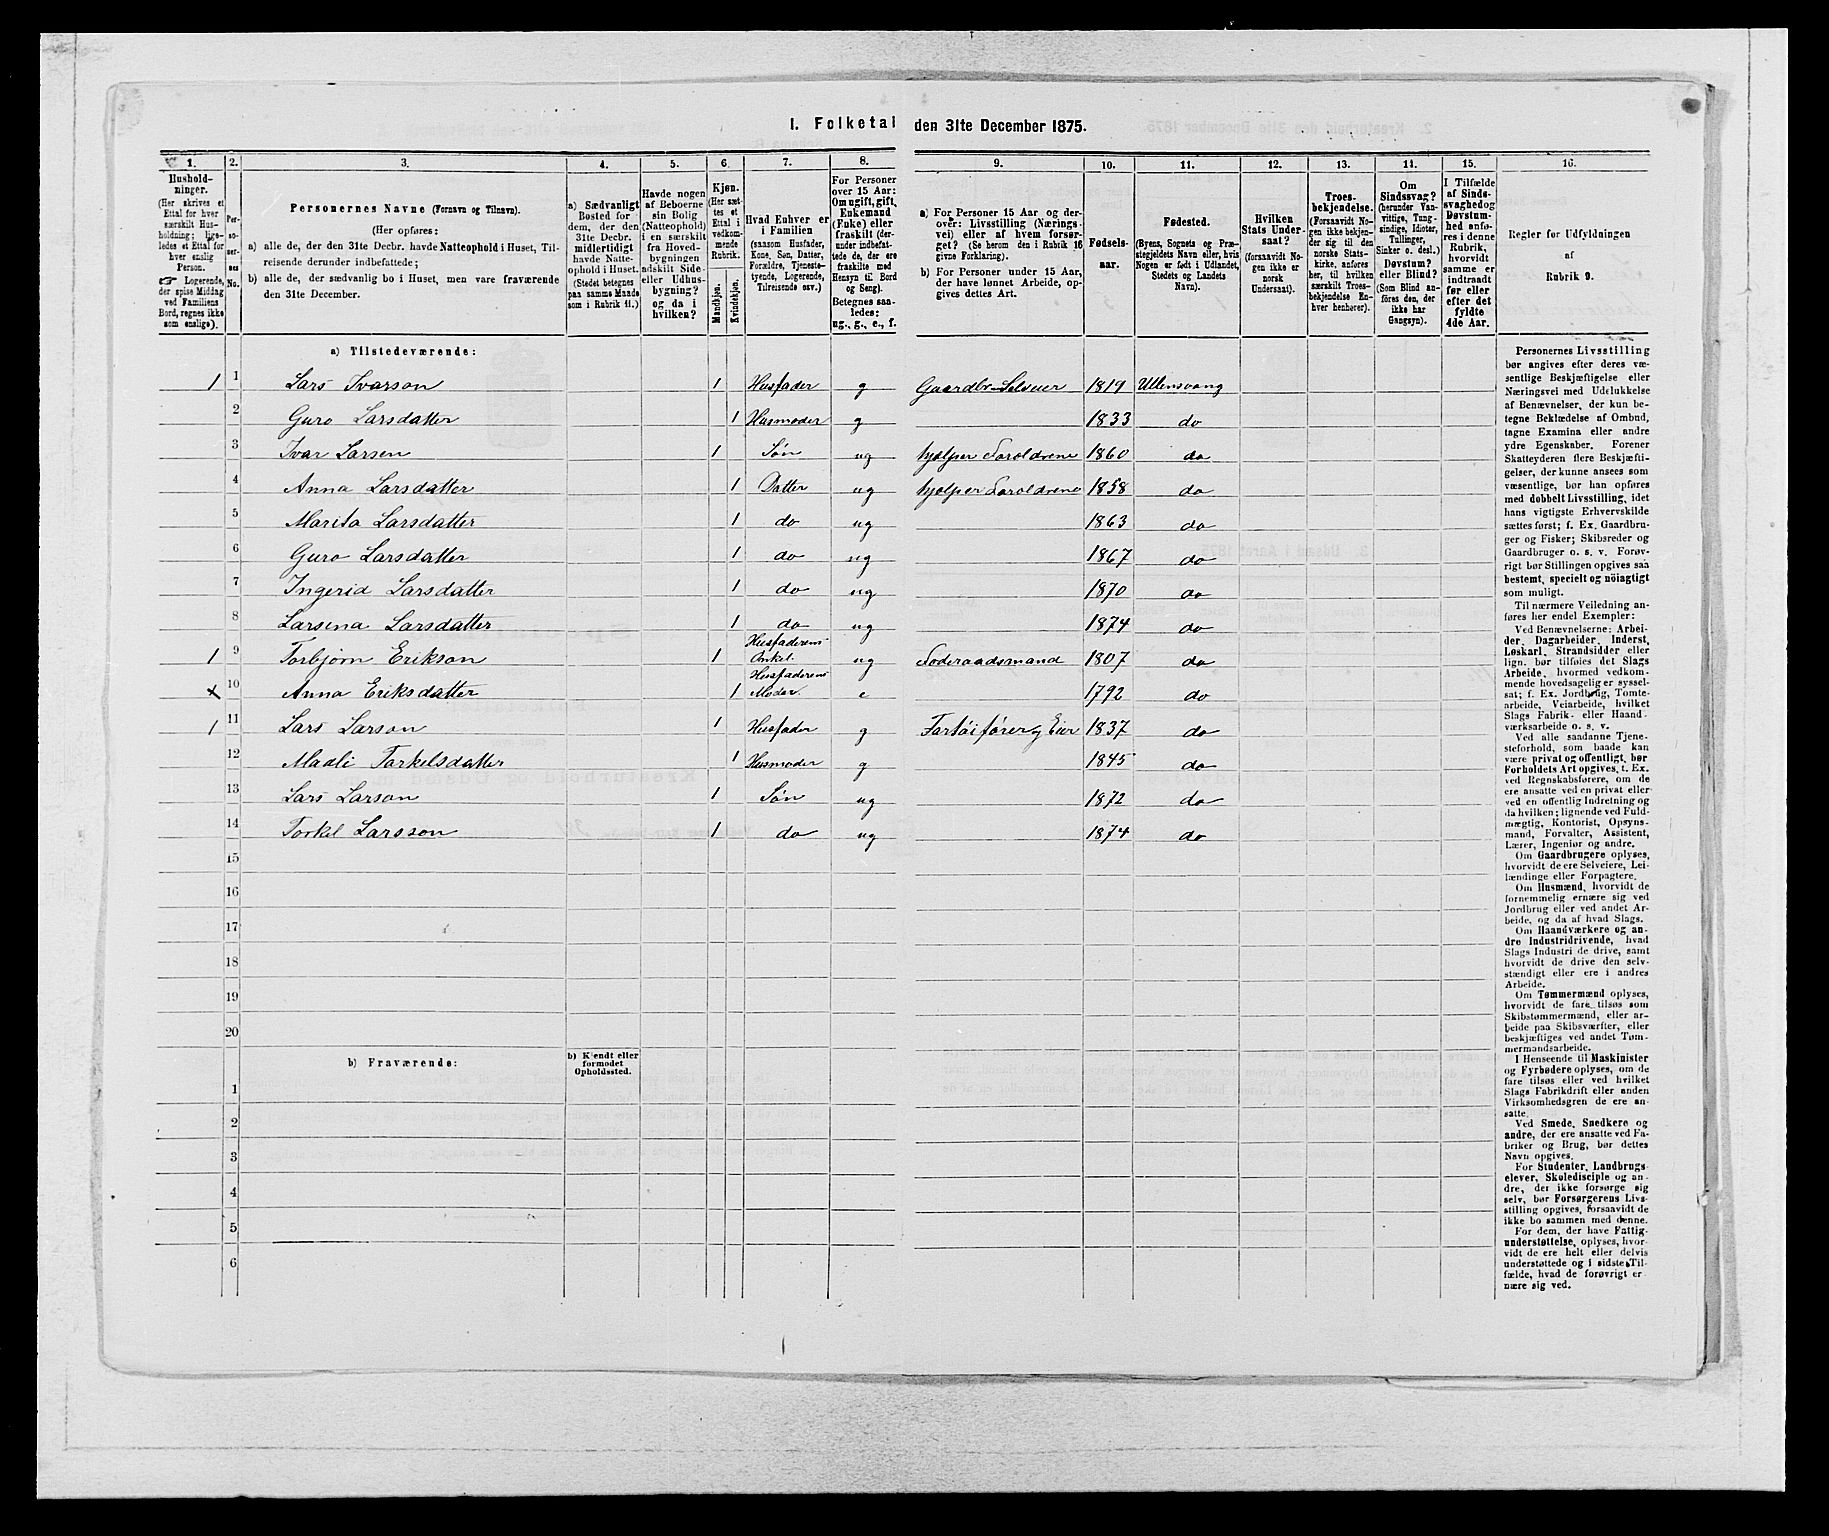 I. Folketal den 31te December 1875.
1. 2. 3. 4. 5. 6. 7. 8. 9. 10. 11. 12. 13. 14. 15. 16.
Hushold-
ninger.
(Her skrives et
Ettal for hver
særskilt Hus-
holdning; lige-
ledes et Ettal for
hver enslig
Person.
☞ Logerende,
der spise Middag
ved Familiens
Bord, regnes ikke
som enslige).
Per-
so-
ner-
nes
No.
Personernes Navne (Fornavn og Tilnavn).
(Her opføres:
a) alle de, der den 31te Decbr. havde Natteophold i Huset, Til-
reisende derunder indbefattede;
b) alle de, der sædvanlig bo i Huset, men vare fraværende
den 31te December.
a) Sædvanligt
Bosted for
dem, der den
31te Decbr.
midlertidigt
havde Natte-
ophold i Huset.
(Stedet betegnes
paa samme Maade
som i Rubrik 11.)
Havde nogen
af Beboerne
sin Bolig
(Natteophold)
i en særskilt
fra Hoved-
bygningen
adskilt Side-
eller Udhus-
bygning?
og da i
hvilken?
Kjøn.
(Her sæt-
tes et
Ettal i
vedkom-
mende
Rubrik.
Mandkjøn.
Kvindekjøn.
Hvad Enhver er
i Familien
(saasom Husfader,
Kone, Søn, Datter,
Forældre, Tjeneste-
tyende, Logerende,
Tilreisende osv.)
For Personer
over 15 Aar:
Om ugift, gift,
Enkemand
(Enke) eller
fraskilt (der-
under indbefat-
tede de, der ere
fraskilte med
Hensyn til Bord
og Seng).
Betegnes saa-
ledes:
ug., g., e., f.
a) For Personer 15 Aar og der-
over: Livsstilling (Nærings-
vei) eller af hvem forsør-
get? (Se herom den i Rubrik 16
givne Forklaring).
b) For Personer under 15 Aar,
der have lønnet Arbeide, op-
gives dettes Art.
Fødsels-
aar.
Fødested.
(Byens, Sognets og Præ-
stegjeldets Navn eller, hvis
Nogen er født i Udlandet,
Stedets og Landets
Navn).
Hvilken
Stats Under-
saat?
(forsaavidt No-
gen ikke er
norsk
Undersaat).
Troes-
bekjendelse.
(Forsaavidt No-
gen ikke bekjen-
der sig til den
norske Stats-
kirke, anføres
her, til hvilken
særskilt Troes-
bekjendelse En-
hver henhører).
Om
Sindssvag?
(herunder Van-
vittige, Tung-
sindige, Idioter,
Tullinger,
Sinker o. desl.)
Døvstum?
eller Blind?
(Som Blind an-
føres den, der
ikke har
Gangsyn).
I Tilfælde
af Sinds-
svaghed og
Døvstum-
hed anfø-
res i denne
Rubrik,
hvorvidt
samme er
indtraadt
før eller
efter det
fyldte
4de Aar.
Regler for Udfyldningen
af
Rubrik 9.
a) Tilstedeværende:
1 1 Lars Ivarson 1 Husfader g Gaardbr. Selveier 1819 Ullensvang
2 Guro Larsdatter 1 Husmoder g 1833 do
3 Ivar Larsen 1 Søn ug hjelper Foroldrene 1860 do
4 Anna Larsdatter 1 Datter ug hjelper Foroldrene 1858 do
5 Marita Larsdatter 1 do ug 1863 do
6 Guro Larsdatter 1 do ug 1867 do
7 Ingerid Larsdatter 1 do ug 1870 do
8 Larsina Larsdatter 1 do ug 1874 do
1 9 Torbjørn Erikson 1 Husfaderens Onkel ug Foderaadsmand 1807 do
x 10 Anna Eriksdatter 1 Husfaderens Moder. e 1792 do
1 11 Lars Larson 1 Husfader g Fartøifører og Eier 1837 do
12 Madli Torkelsdatter 1 Husmoder g 1845 do
13 Lars Larson 1 Søn ug 1872 do
14 Torkel Larsson 1 do ug 1874 do
15
16
17
18
19
20
b) Fraværende:
b) Kjendt eller
formodet
Opholdssted.
1
2
3
4
5
6
Personernes Livsstilling
bør angives efter deres væ-
sentlige Beskjæftigelse eller
Næringsvei med Udelukkelse
af Benævnelser, der kun be-
tegne Beklædelse af Ombud,
tagne Examina eller andre
ydre Egenskaber. Forener
Skatteyderen flere Beskjæfti-
gelser, der kunne ansees som
væsentlige, bør han opføres
med dobbelt Livsstilling, idet
hans vigtigste Erhvervskilde
sættes først; f. Ex. Gaardbru-
ger og Fisker; Skibsreder og
Gaardbruger o. s. v. Forøv-
rigt bør Stillingen opgives saa
bestemt, specielt og nöiagtigt
som muligt.
Til nærmere Veiledning an-
føres her endel Exempler:
Ved Benævnelserne: Arbei-
der, Dagarbeider, Inderst,
Løskarl, Strandsidder eller
lign. bør tilføies det Slags
Arbeide, hvormed vedkom-
mende hovedsagelig er syssel-
sat; f. Ex. Jordbrug, Tomte-
arbeide, Veiarbeide, hvilket
Slags Fabrik- eller Haand-
værksarbeide o. s. v.
Ved alle saadanne Tjene-
steforhold, som baade kan
være privat og offentligt, bør
Forholdets Art opgives, t. Ex.
ved Regnskabsførere, om de
ere ansatte ved en privat eller
ved en offentlig Indretning og
da hvilken; lignende ved Fuld-
mægtig, Kontorist, Opsyns-
mand, Forvalter, Assistent,
Lærer, Ingeniør og andre.
Om Gaardbrugere oplyses,
hvorvidt de ere Selveiere, Lei-
lændinge eller Forpagtere.
Om Husmænd, hvorvidt de
fornemmelig ernære sig ved
Jordbrug eller ved andet Ar-
beide, og da af hvad Slags.
Om Haandværkere og an-
dre Industridrivende, hvad
Slags Industri de drive, samt
hvorvidt de drive den selv-
stændigt eller ere i andres
Arbeide.
Om Tømmermænd oplyses,
hvorvidt de fare tilsøs som
Skibstømmermænd, eller ar-
beide paa Skibsværfter, eller
beskjæftiges ved andet Tøm-
mermandsarbeide.
I Henseende til Maskinister
og Fyrbødere oplyses, om de
fare tilsøs eller ved hvilket
Slags Fabrikdrift eller anden
Virksomhedsgren de ere an-
satte.
Ved Smede, Snedkere og
andre, der ere ansatte ved Fa-
briker og Brug, bør dettes
Navn opgives.
For Studenter, Landbrugs-
elever, Skoledisciple og an-
dre, der ikke forsørge sig
selv, bør Forsørgerens Livs-
stilling opgives, forsaavidt de
ikke bo sammen med denne.
For dem, der have Fattig-
understøttelse, oplyses, hvor-
vidt de ere helt eller delvis
understøttede og i sidste Til-
fælde, hvad de forøvrigt er-
nære sig ved.